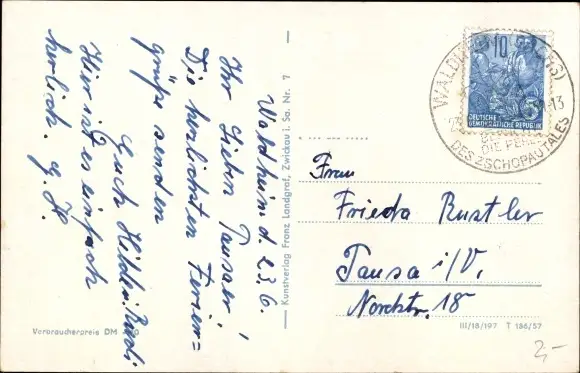 Waldheim d. 23.6.
Ihr Lieben Pausaer!
Die herzlichsten Ferien=
grüße senden
Euch Hilde u. Rudi.
Hier ist es einfach
herrlich. g. H.
Verbraucherpreis DM
Kunstverlag Franz Landgraf, Zwickau i. Sa. Nr. 7
10
DEUTSCHE
DEMOKRATISCHE REPUBLIK
WALDHEIM (SACHS)
-13
DIE PERLE
DES ZSCHOPAUTALES
Frau
Frieda Rustler
Pausa i/V.
Nordstr. 18
III/18/197 T 186/57
2,-